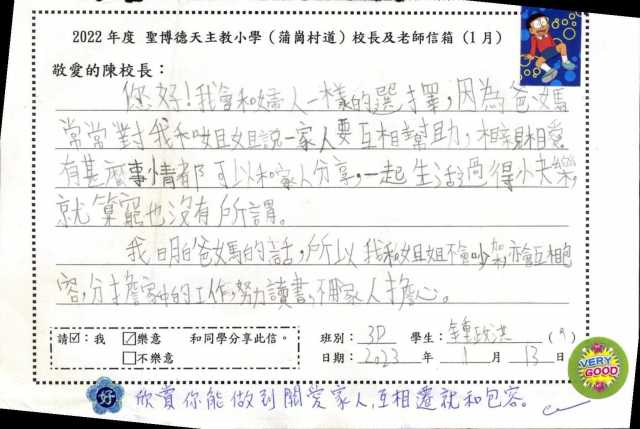 2022 年度 聖博德天主教小學（蒲崗村道）校長及老師信箱（1月）
敬愛的陳校長：
你好！我會和嬌人一樣的選擇，因為爸媽
常常對我和姐姐說一家人要互相幫助，相親相愛
有甚麼事情都可以和家人分享，一起生活過得小快樂，
就算窮也沒有所謂。
我明爸媽的話，所以我和姐姐不會吵架，亦會互相包
容，分擔家中的工作，努力讀書，不用家人擔心。
請☑：我 ☑樂意 和同學分享此信。
□不樂意
班別：3D 學生：鍾政洪 （9）
日期：2023 年 1 月 13 日
VERY GOOD
好 欣賞你能做到關愛家人，互相遷就和包容。